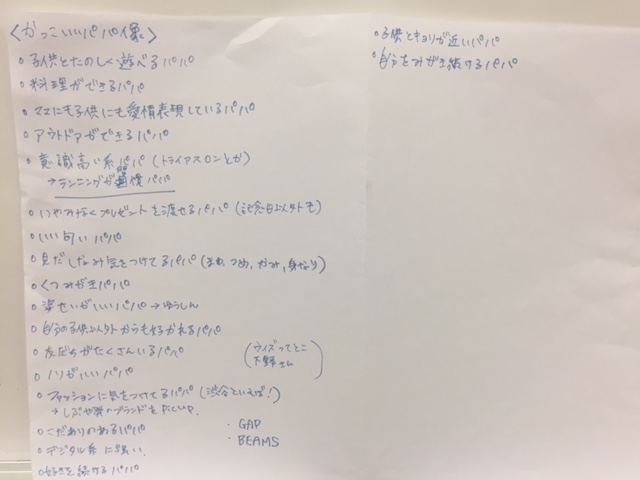 〈かっこいいパパ像〉
○子供とたのしく遊べるパパ
○料理ができるパパ
○ママにも子供にも愛情表現しているパパ
○アウトドアができるパパ
○意識高い系パパ（トライアスロンとか）
→ランニングが習慣パパ
○いやみなくプレゼントを渡せるパパ（記念日以外も）
○いい匂いパパ
○身だしなみ気をつけてるパパ（まゆ、つめ、かみ、身なり）
○くつみがきパパ
○姿せいがいいパパ→
○自分の子供以外からも好かれるパパ
○友だちがたくさんいるパパ
（ウィズってとこ
下野さん）
○ノリがいいパパ
○ファッションに気をつけてるパパ（渋谷といえば！）
→しぶや発のブランドを
○こだわりのあるパパ
・GAP
・BEAMS
○デジタル系に強い、
○好きを続けるパパ
○子供とキョリが近いパパ
○自分をみがき続けるパパ